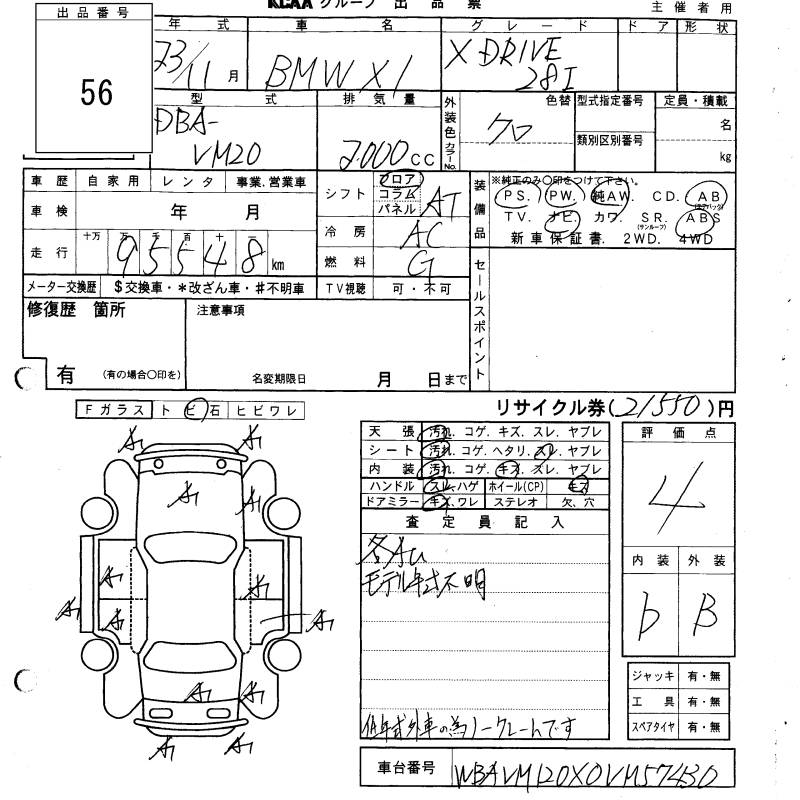 KCAA グループ 出 品 票
主 催 者 用
出 品 番 号
56
年 式
23/11 月
車 名
BMW X1
グ レ ー ド
X DRIVE
28I
ド ア
形 状
型 式
DBA-
VM20
排 気 量
2000 cc
外装色 カラーNo.
色替
クロ
型式指定番号
類別区別番号
定員・積載
名
kg
車 歴
自 家 用
レ ン タ
事業. 営業車
車 検
年 月
走 行
十万 万 千 百 十 一
9 5 5 4 8 km
メーター交換歴
$交換車・*改ざん車・♯不明車
シフト
フロア
コラム
パネル
AT
冷 房
AC
燃 料
G
TV視聴
可 ・ 不可
装備品
※純正のみ○印をつけて下さい。
PS. PW. 純AW. CD. AB
(エアバック)
TV. ナビ. カワ. SR. ABS
(サンルーフ)
新車保証書. 2WD. 4WD
セールスポイント
修復歴 箇所
有
(有の場合○印を)
注意事項
名変期限日 月 日まで
リサイクル券(21550)円
Fガラス
ト ビ 石
ヒビワレ
天 張
汚れ. コゲ. キズ. スレ. ヤブレ
シート
汚れ. コゲ. ヘタリ. スレ. ヤブレ
内 装
汚れ. コゲ. キズ. スレ. ヤブレ
ハンドル
スレ. ハゲ
ホイール(CP)
キズ
ドアミラー
キズ. ワレ
ステレオ
欠. 穴
査 定 員 記 入
各AU
モデル年式不明
低年式外車の為ノークレームです
評 価 点
4
内 装
外 装
b
B
ジャッキ 有・無
工 具 有・無
スペアタイヤ 有・無
A1 A1
A1
A1 A1
A1 A1 A1
A1 A1
A1 A1
車台番号
WBAVM120X0VM57430